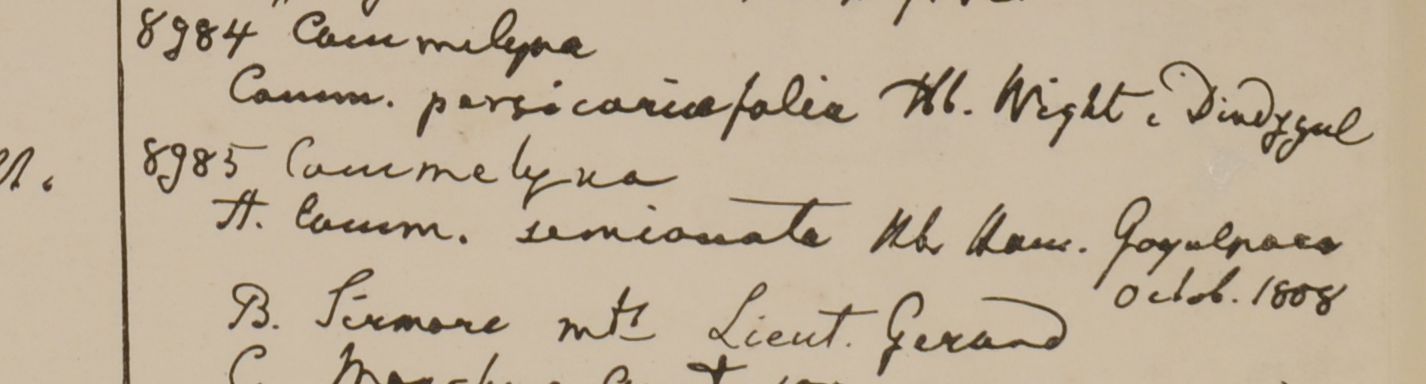 8984 Commelyna
Comm. persicariaefolia Hb. Wight, Dindygul
8985 Commelyna
A. Comm. semiovata Hb Ham. Goyalpara
Octob. 1808
B. Sirmore mts Lieut. Gerard
C.